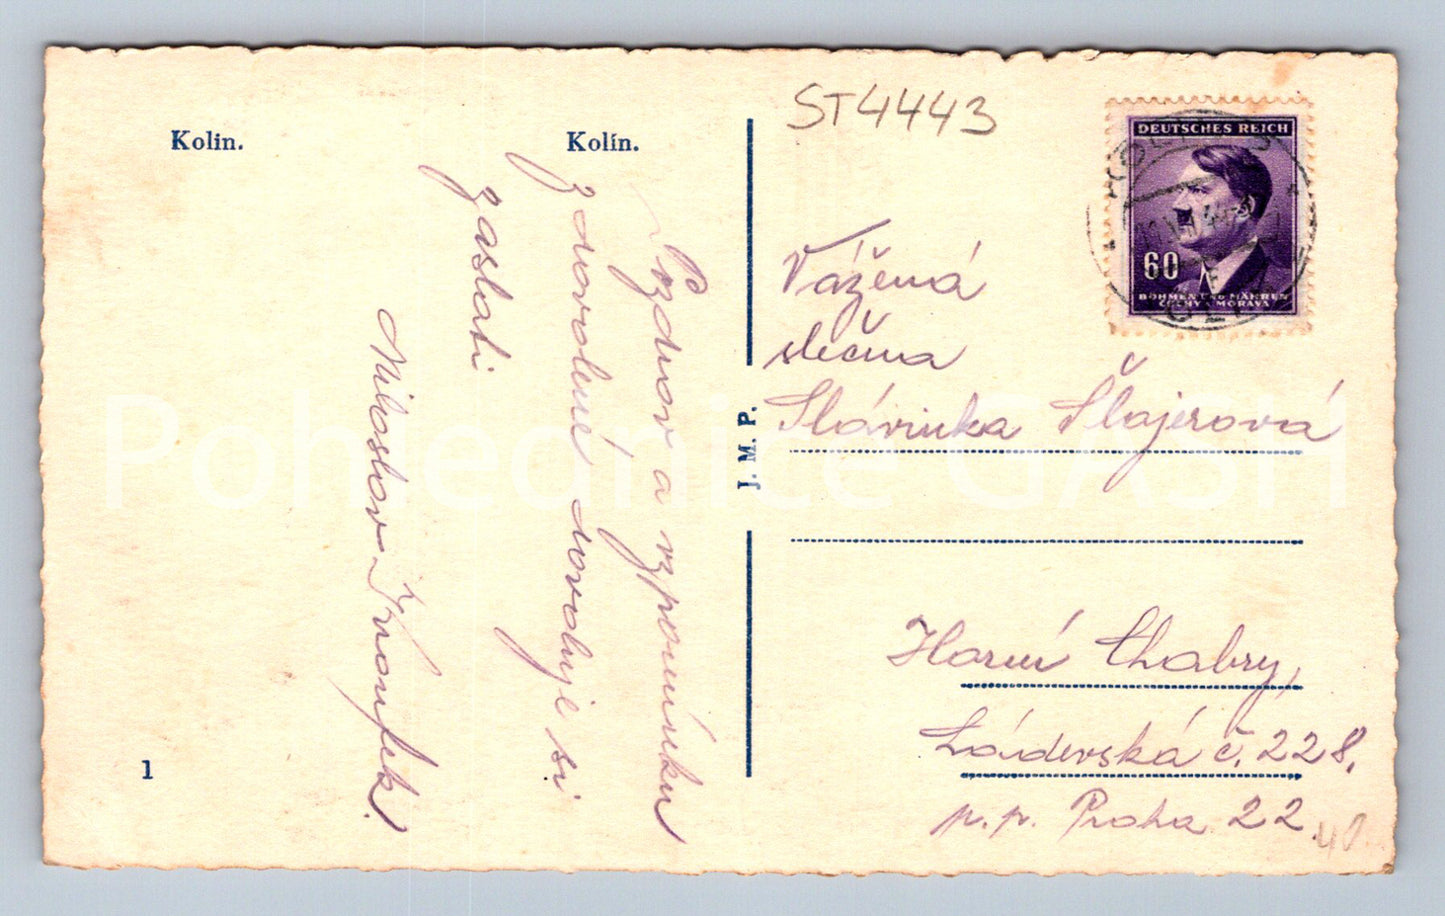 Kolin.
Kolín.
ST4443
Pozdrav a vzpomínku
z dovolené dovoluje si
zaslati
Miloslav
J. M. P.
1
DEUTSCHES REICH
60
BÖHMEN UND MÄHREN
ČECHY A MORAVA
Vážená
slečna
Slávinka Šlajerová
Horní Chabry,
č. 228.
p.p. Praha 22.
40
Pohlednice GASH